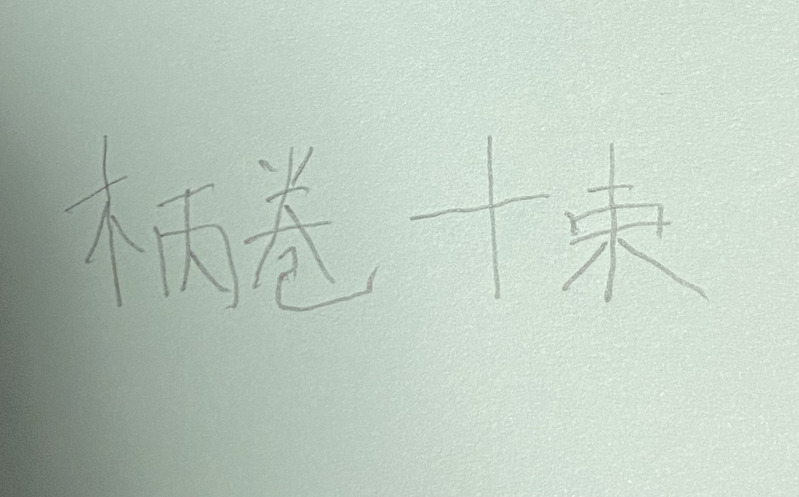 柄巻 十束